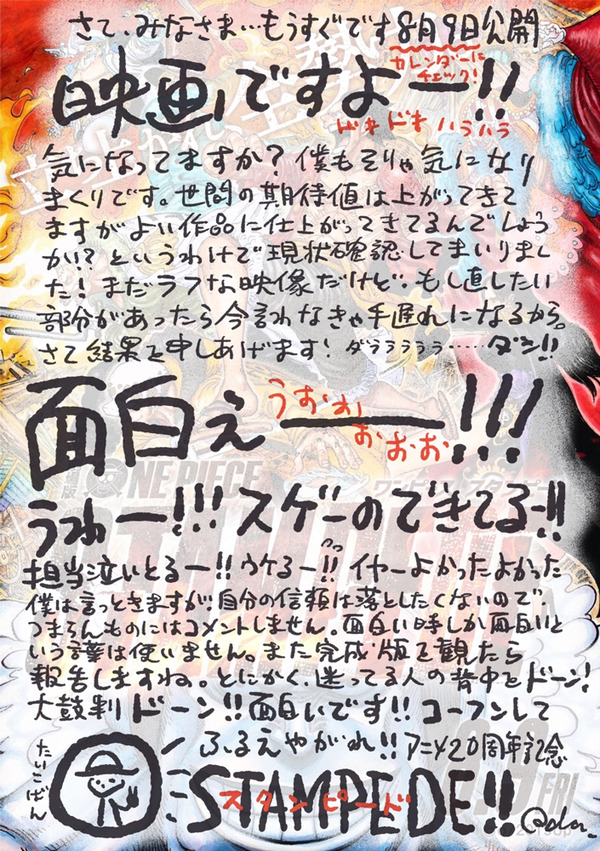 さて、みなさま…もうすぐです8月9日公開
カレンダーに
チェック!
映画ですよー!!
ドキドキ ハラハラ
気になってますか? 僕もそりゃ気になり
まくりです。世間の期待値は上がってきて
ますがよい作品に仕上がってきてるんでしょう
か!? というわけで現状確認してまいりまし
た! まだラフな映像だけど、もし直したい
部分があったら今言わなきゃ手遅れになるから。
さて結果を申しあげます! ダララララララ……ダン!!
面白ぇー!!!
うおぉ
おおお
うわー!!! スゲーのできてるー!!
担当泣いとるー!! ウケるー!! イヤーよかったよかった
僕は言っときますが、自分の信頼は落としたくないので、
つまらんものにはコメントしません。面白い時しか面白いと
いう言葉は使いません。また完成版を観たら
報告しますね。とにかく、迷ってる人の背中をドーン!
太鼓判ドーン!! 面白いです!! コーフンして
ふるえやがれ!! アニメ20周年記念
たいこばん
STAMPEDE!!
スタンピード
ONE PIECE
FRI